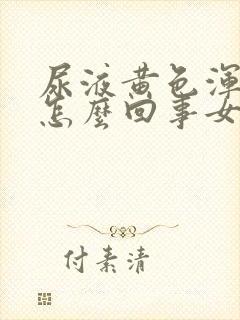 尿液黄色浑
怎麼回事女
付素清